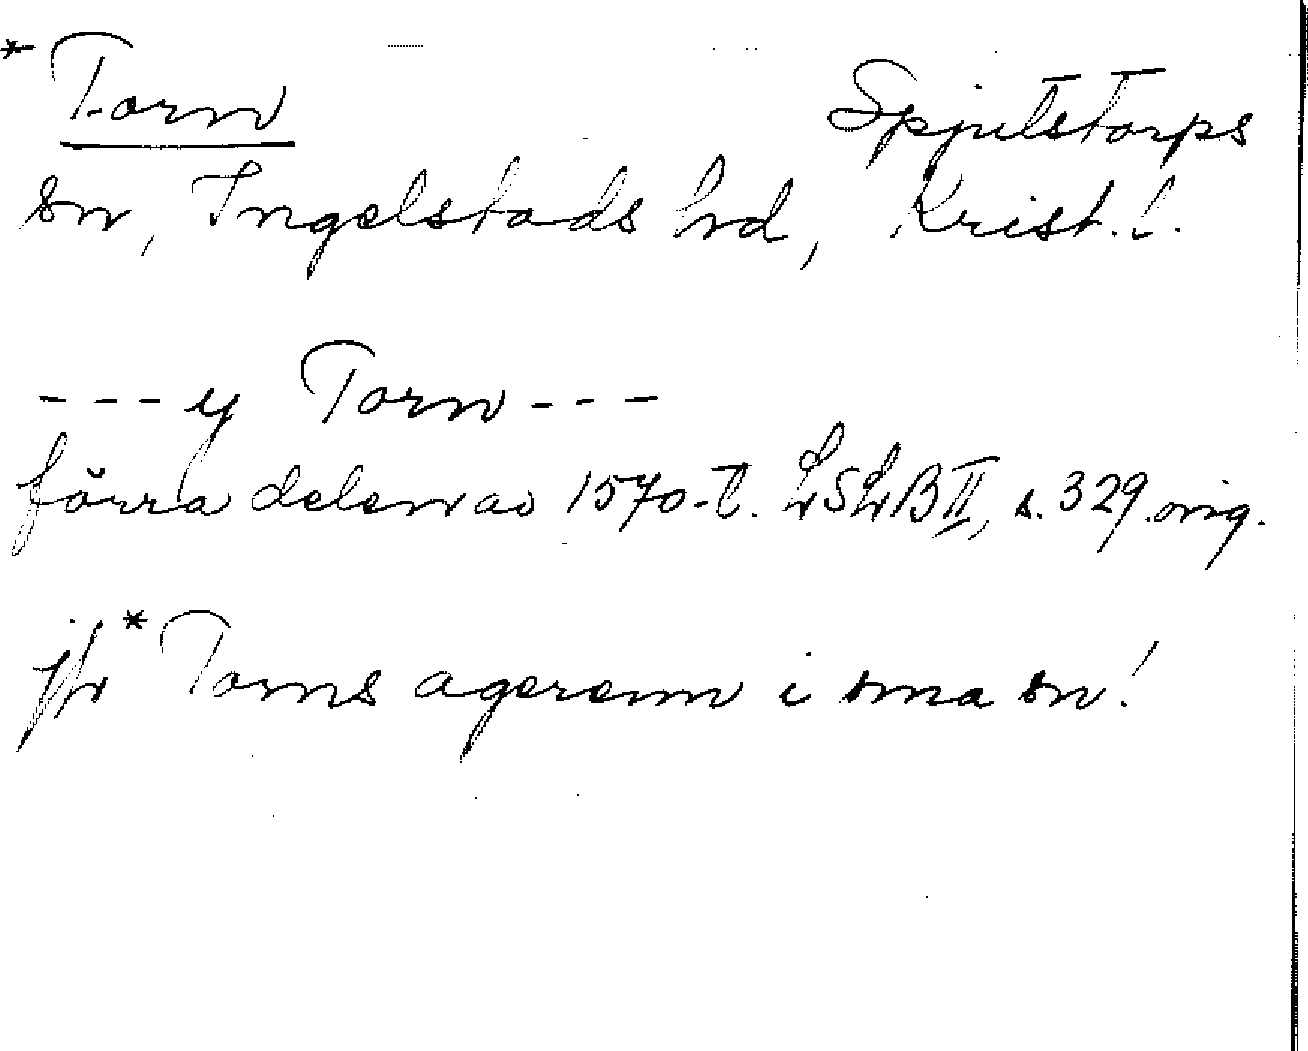 * Torn Spjutstorps
sn, Ingelstads hd, Krist. l.
- - - y Torn - - -
förra delen av 1570-t. LSLB II, s. 329. orig.
jfr * Torns agerenn i sma sn!